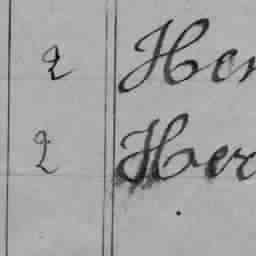 2 Her
2 Her